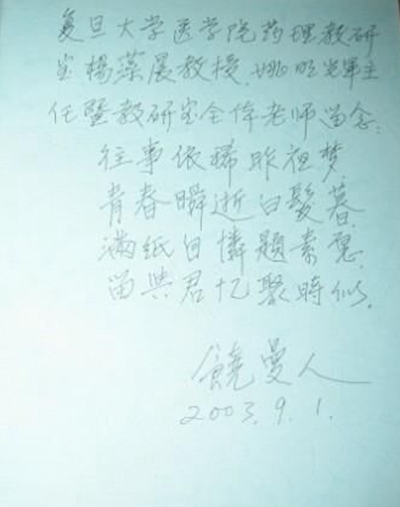 复旦大学医学院药理教研
室楊藻宸教授、姚明辉主
任暨教研室全体老师留念:
往事依稀昨夜梦,
青春瞬逝白髮暮,
满纸自憐題素怨,
留與君忆聚時似.
饒曼人
2003.9.1.